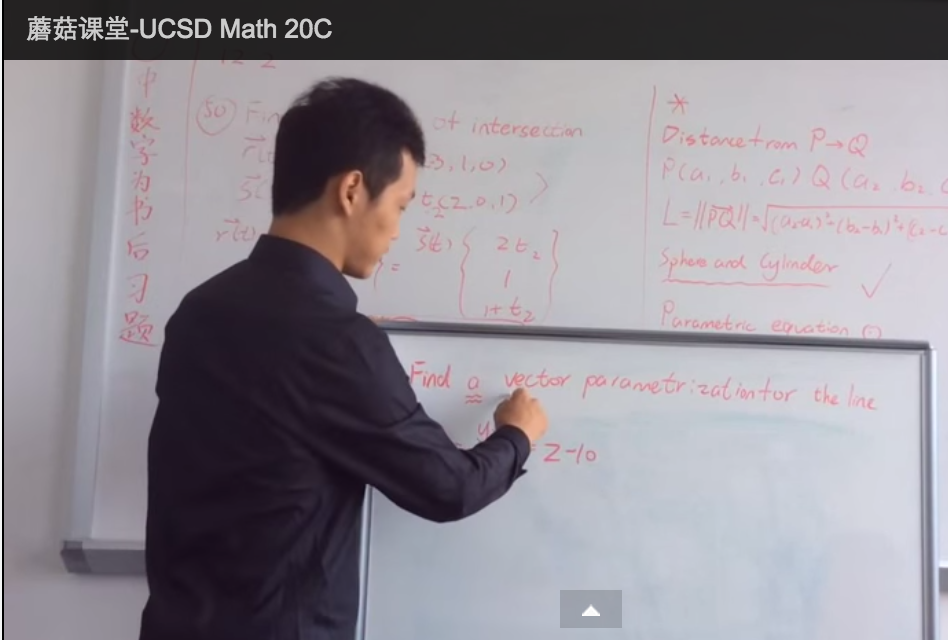 蘑菇课堂-UCSD Math 20C
中数字为书后习题
12-2
50 Fin of intersection
3,1,0)
t₂(2,0,1)
r(t)
s(t) { 2t₂
1
1+t₂ }
*
Distance from P→Q
P(a₁,b₁,c₁) Q(a₂,b₂,
L=||PQ||=
Sphere and Cylinder ✓
Parametric equation
Find a vector parametrization for the line
= z-10